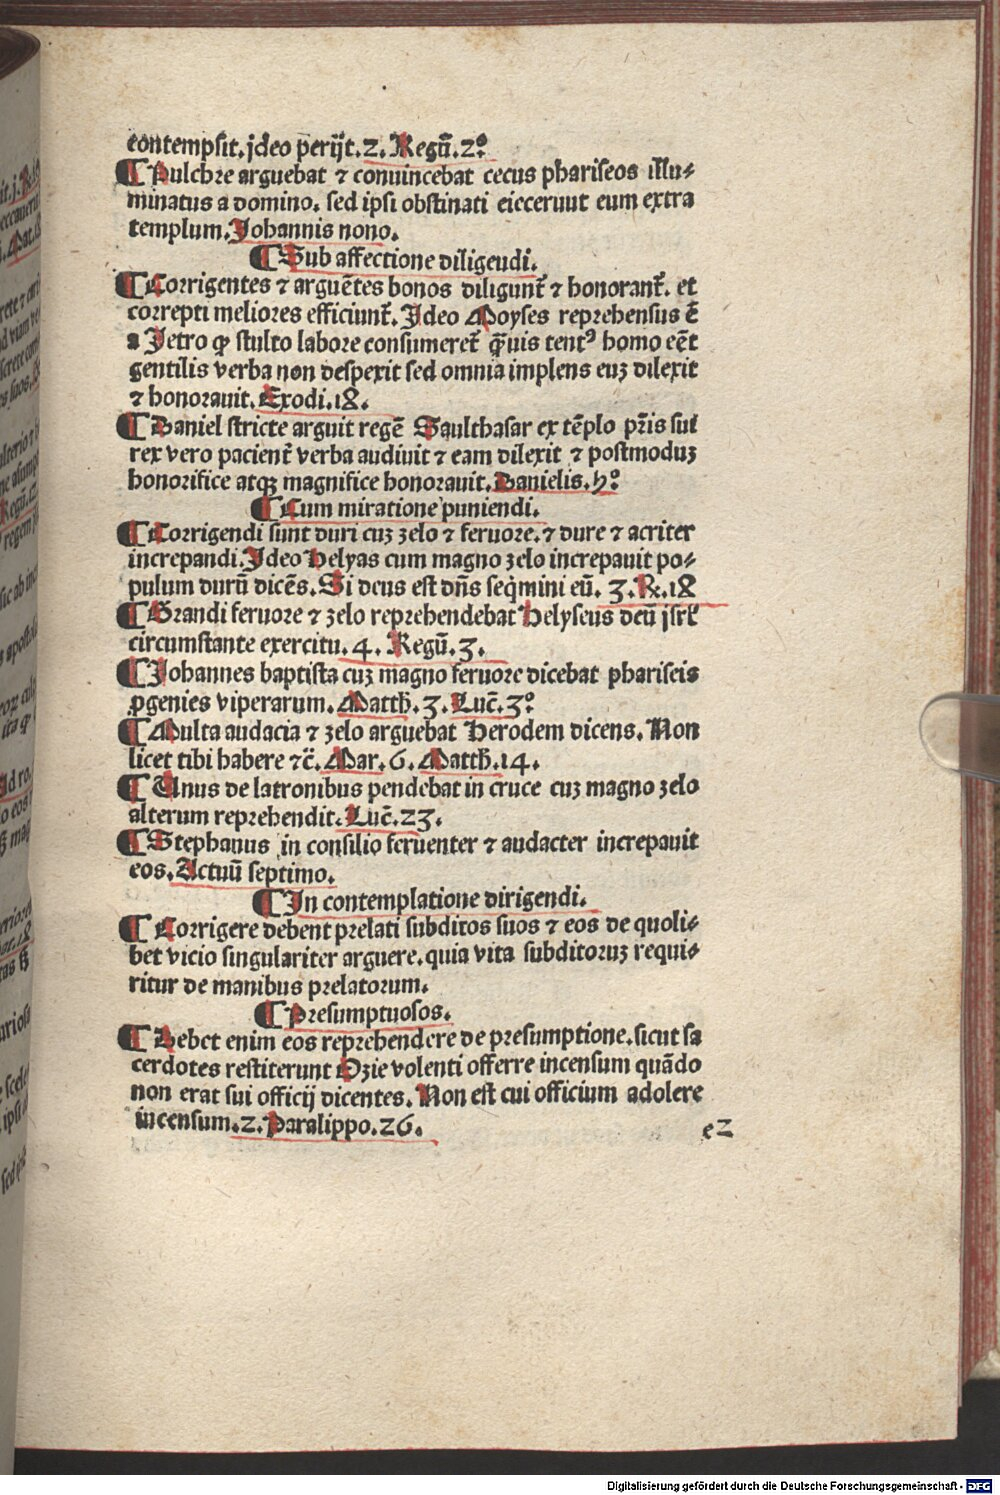 contempsit. jdeo perijt. 2. Regū. 2°
¶ Pulchre arguebat ⁊ conuincebat cecus phariseos illu⸗
minatus a domino. sed ipsi obstinati eiecerunt eum extra
templum. Johannis nono.
¶ Sub affectione diligendi.
¶ Corrigentes ⁊ arguētes bonos diligunt᷑ ⁊ honorant᷑. et
correpti meliores efficiunt᷑. Ideo Moyses reprehensus ē
a Jetro ꝙ stulto labore consumeret᷑ q̄uis tentꝰ homo eēt
gentilis verba non despexit sed omnia implens euꝫ dilexit
⁊ honorauit. Exodi. 18.
¶ Daniel stricte arguit regē Saulthasar ex tēplo pr̄is sui
rex vero pacient᷑ verba audiuit ⁊ eam dilexit ⁊ postmoduꝫ
honorifice atqꝫ magnifice honorauit. Danielis. h°
¶ Cum miratione puniendi.
¶ Corrigendi sunt duri cuꝫ zelo ⁊ feruore. ⁊ dure ⁊ acriter
increpandi. Ideo Helyas cum magno zelo increpauit po⸗
pulum durū dicēs. Si deus est dn̄s seq̇mini eū. 3. R. 18
¶ Grandi feruore ⁊ zelo reprehendebat Helyseus deū jsrl̄
circumstante exercitu. 4. Regū. 3.
¶ Johannes baptista cuꝫ magno feruore dicebat phariseis
ꝓgenies viperarum. Matth̄. 3. Luc̄. 3°
¶ Multa audacia ⁊ zelo arguebat Herodem dicens. Non
licet tibi habere ⁊c̄. Mar. 6. Matth̄. 14.
¶ Unus de latronibus pendebat in cruce cuꝫ magno zelo
alterum reprehendit. Luc̄. 23.
¶ Stephanus in consilio feruenter ⁊ audacter increpauit
eos. Actuū septimo.
¶ In contemplatione dirigendi.
¶ Corrigere debent prelati subditos suos ⁊ eos de quoli⸗
bet vicio singulariter arguere. quia vita subditoruꝫ requi⸗
ritur de manibus prelatorum.
¶ Presumptuosos.
¶ Debet enim eos reprehendere de presumptione. sicut sa
cerdotes restiterunt Ozie volenti offerre incensum quādo
non erat sui officij dicentes. Non est cui officium adolere
incensum. 2. Paralippo. 26.
e2
Digitalisierung gefördert durch die Deutsche Forschungsgemeinschaft - DFG